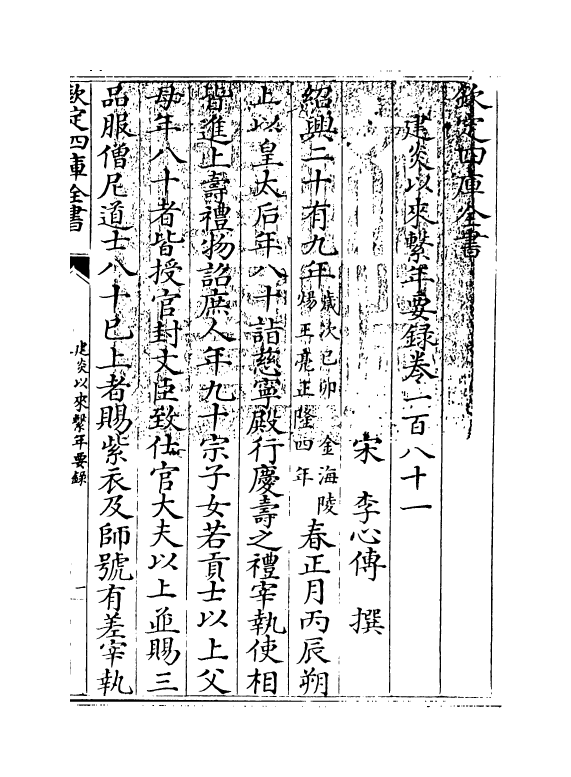 欽定四庫全書
建炎以來繫年要録卷一百八十一
宋 李心傳 撰
紹興二十有九年歲次己卯金海陵煬王亮正隆四年春正月丙辰朔
上以皇太后年八十詣慈寧殿行慶壽之禮宰執使相
皆進上壽禮物詔庶人年九十宗子女若貢士以上父
母年八十者皆授官封文臣致仕官大夫以上並賜三
品服僧尼道士八十已上者賜紫衣及師號有差宰執
欽定四庫全書
建炎以來繫年要録
一